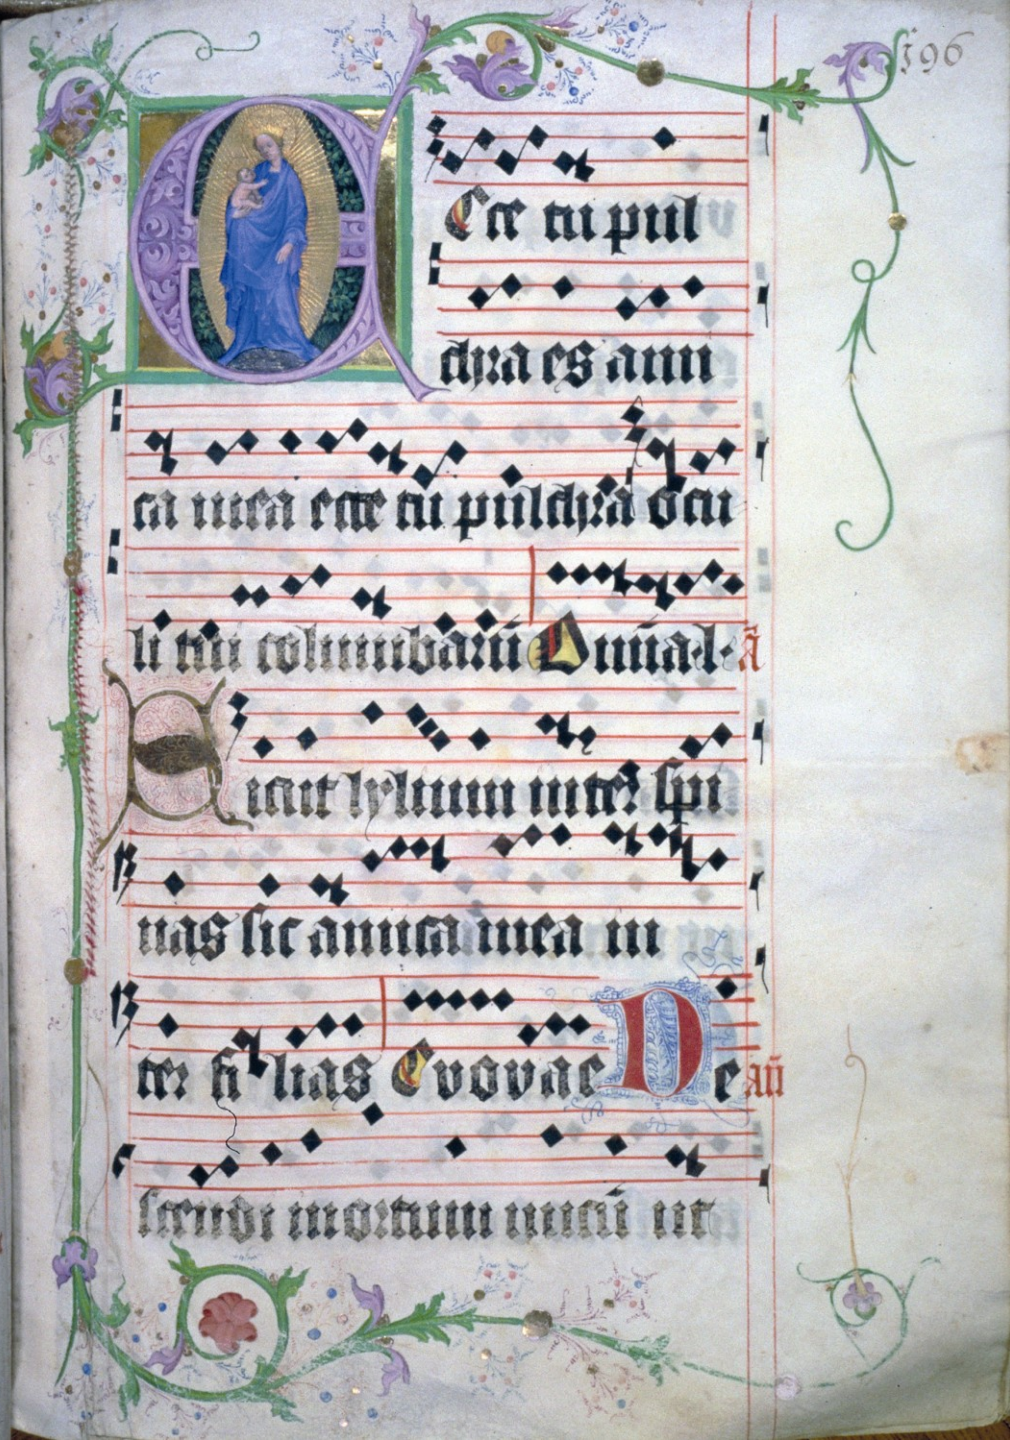 196
Ecce tu pul
chra es ami
ca mea ecce tu pulchra ocu
li tui columbarū Dn̄ia·l· ā
Sicut lylium inter spi
nas sic amica mea in
ter filias Evovae De añ
scendi in ortum nucū ut